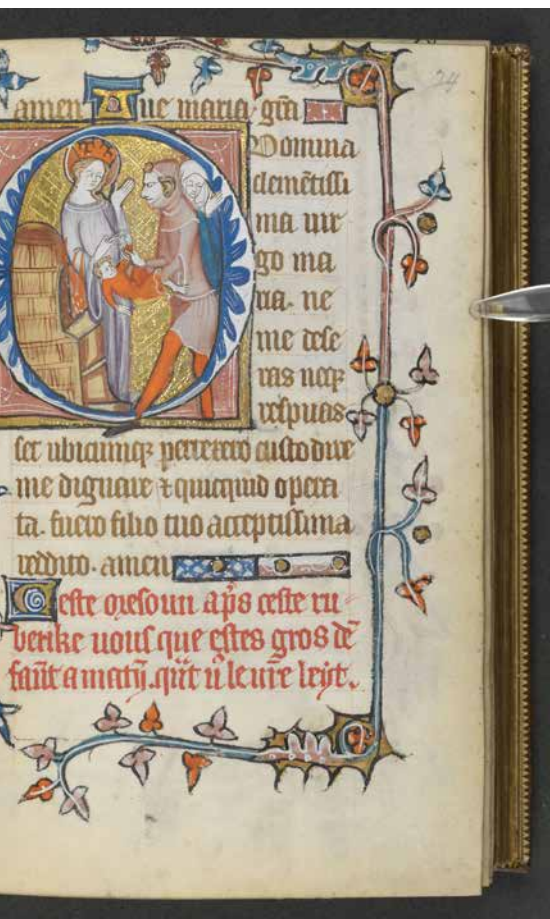 24
amen Aue maria gr̃a
O Domina
clemẽtissi
ma uir
go ma
ria. ne
me dese
ras neqꝫ
respuas
set ubicumqꝫ perrexero custodire
me dignare ⁊ quicquid opera
ta. fuero filio tuo acceptissima
reddito. amen
Ceste oresoun ap̃s ceste ru
berike uous que estes gros dẽ
fañt a matỹ. qñt